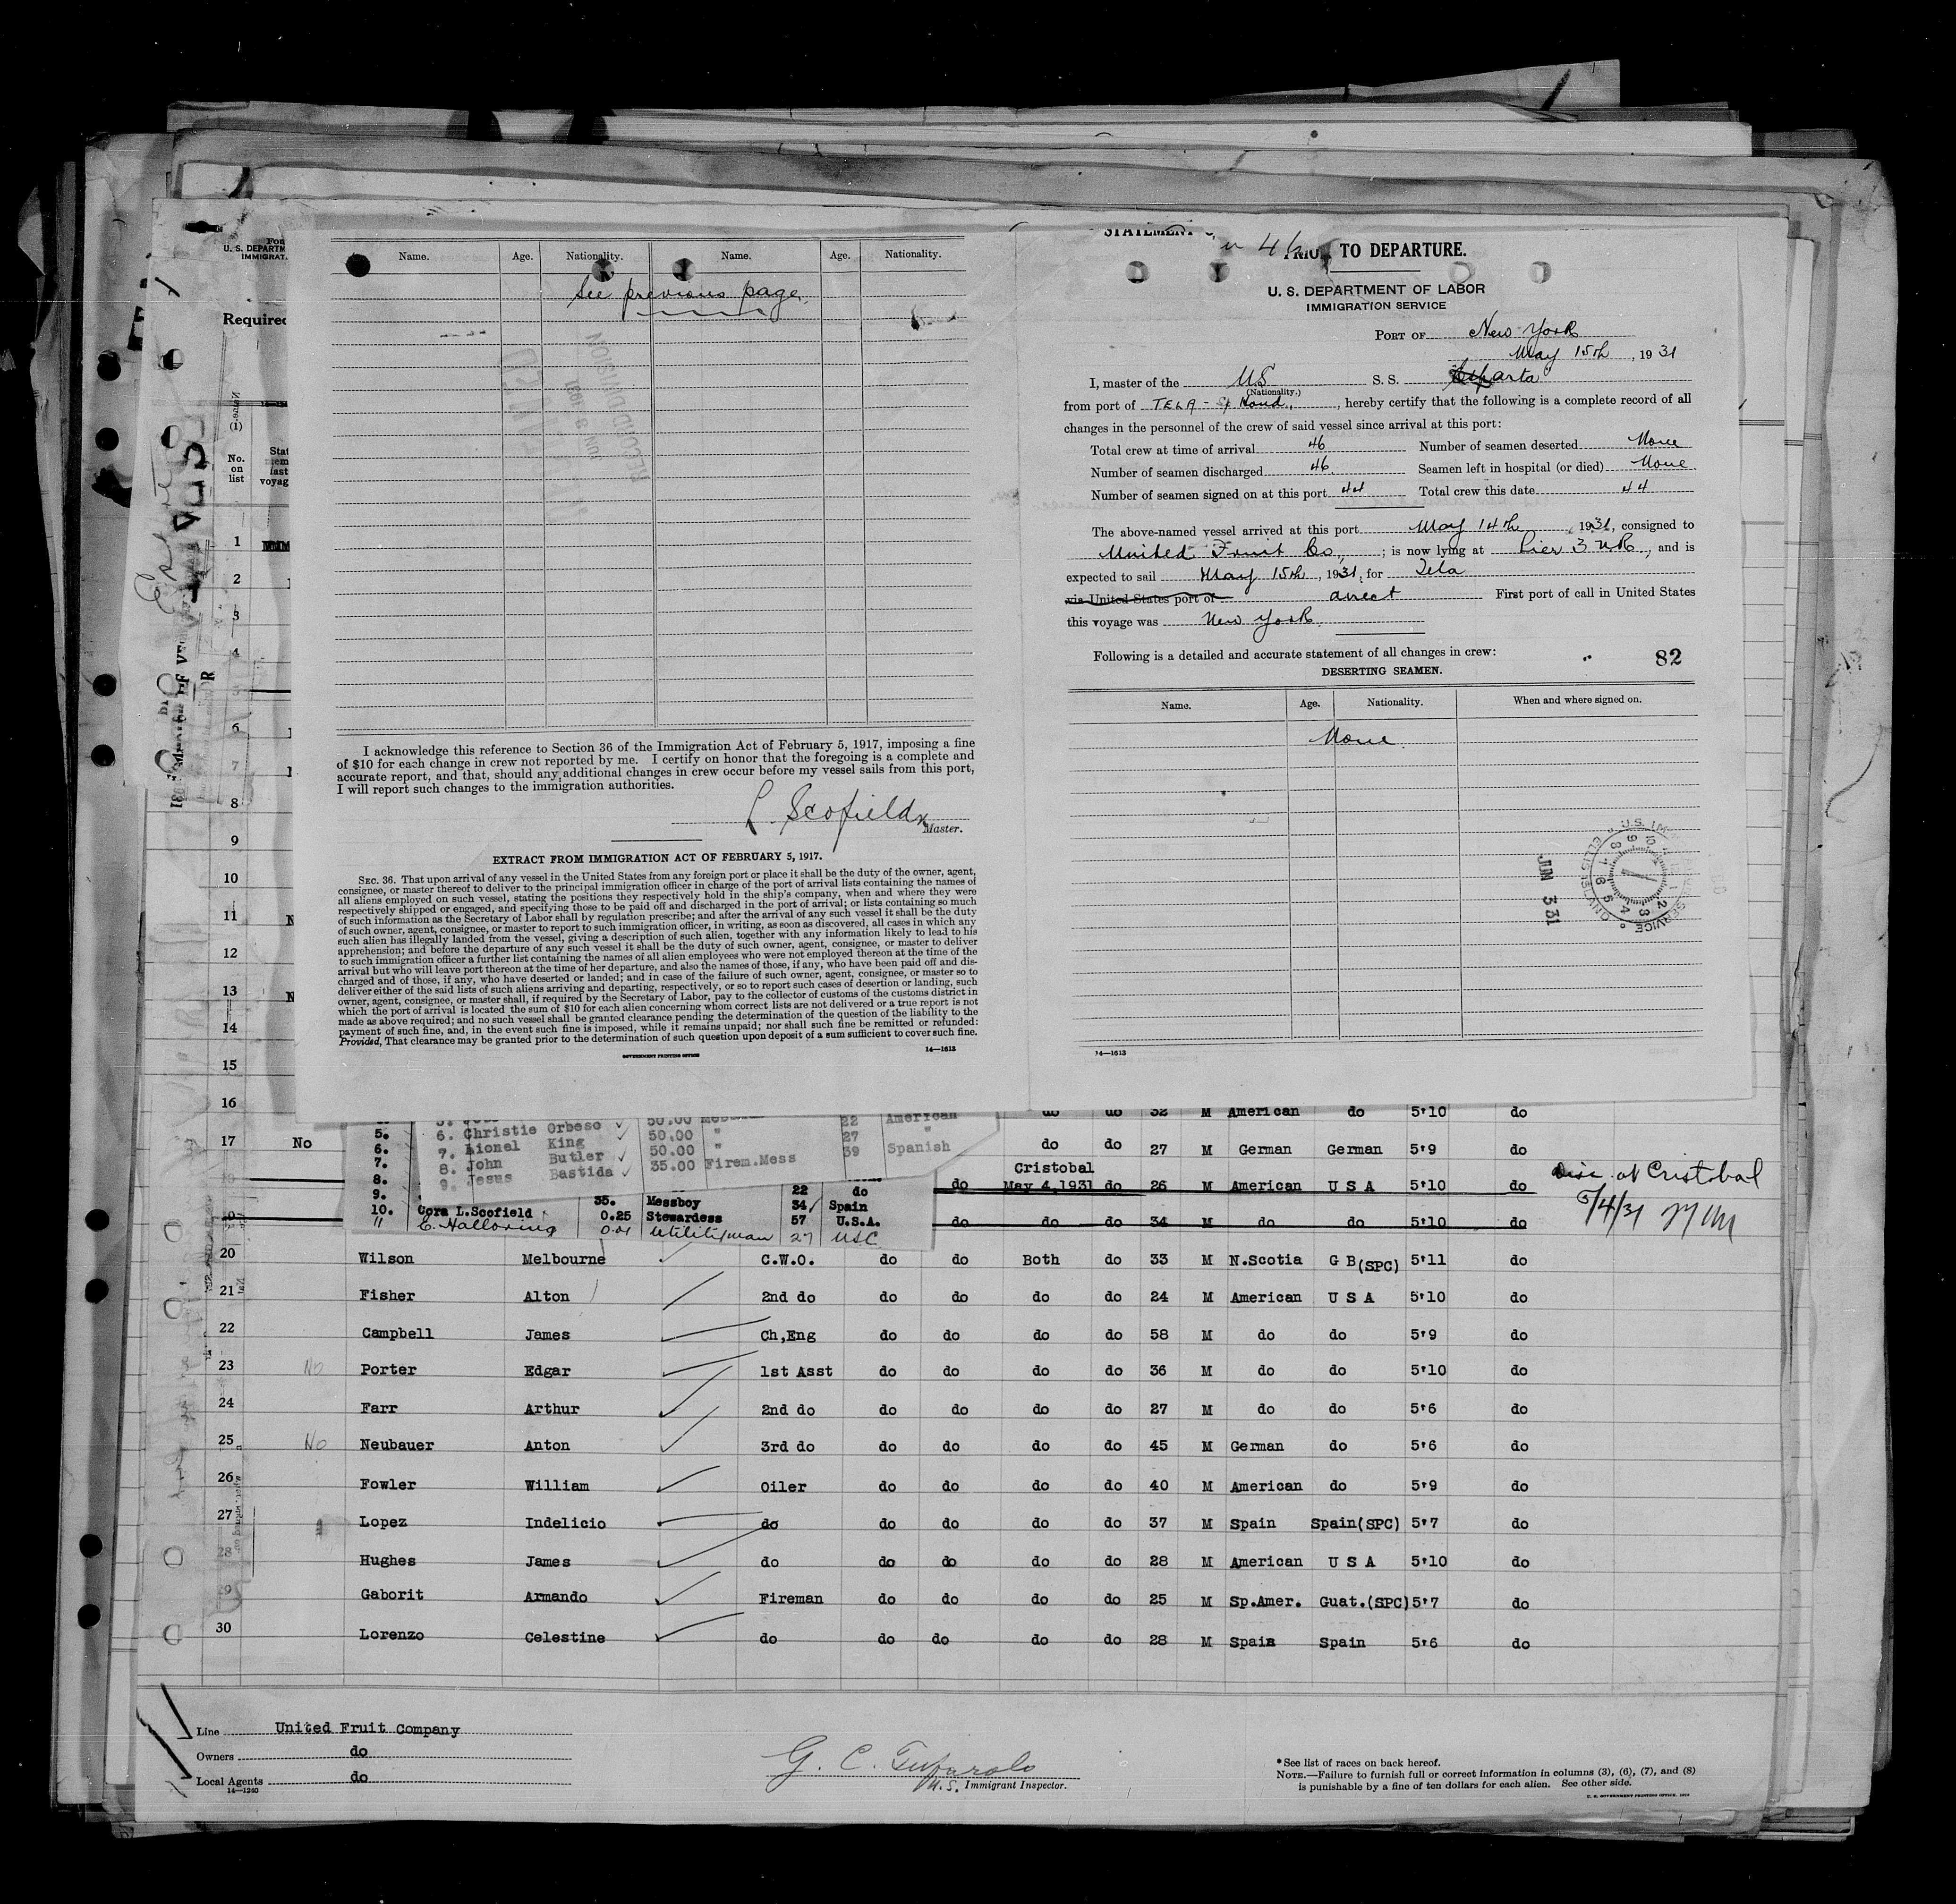 Name. Age. Nationality. Name. Age. Nationality.
See previous page
RECORD DIVISION
JUN 3 1931
I acknowledge this reference to Section 36 of the Immigration Act of February 5, 1917, imposing a fine
of $10 for each change in crew not reported by me. I certify on honor that the foregoing is a complete and
accurate report, and that, should any additional changes in crew occur before my vessel sails from this port,
I will report such changes to the immigration authorities.
L. Scofield
Master.
EXTRACT FROM IMMIGRATION ACT OF FEBRUARY 5, 1917.
SEC. 36. That upon arrival of any vessel in the United States from any foreign port or place it shall be the duty of the owner, agent,
consignee, or master thereof to deliver to the principal immigration officer in charge of the port of arrival lists containing the names of
all aliens employed on such vessel, stating the positions they respectively hold in the ship's company, when and where they were
respectively shipped or engaged, and specifying those to be paid off and discharged in the port of arrival; or lists containing so much
of such information as the Secretary of Labor shall by regulation prescribe; and after the arrival of any such vessel it shall be the duty
of such owner, agent, consignee, or master to report to such immigration officer, in writing, as soon as discovered, all cases in which any
such alien has illegally landed from the vessel, giving a description of such alien, together with any information likely to lead to his
apprehension; and before the departure of any such vessel it shall be the duty of such owner, agent, consignee, or master to deliver
to such immigration officer a further list containing the names of all alien employees who were not employed thereon at the time of the
arrival but who will leave port thereon at the time of her departure, and also the names of those, if any, who have been paid off and dis-
charged and of those, if any, who have deserted or landed; and in case of the failure of such owner, agent, consignee, or master so to
deliver either of the said lists of such aliens arriving and departing, respectively, or so to report such cases of desertion or landing, such
owner, agent, consignee, or master shall, if required by the Secretary of Labor, pay to the collector of customs of the customs district in
which the port of arrival is located the sum of $10 for each alien concerning whom correct lists are not delivered or a true report is not
made as above required; and no such vessel shall be granted clearance pending the determination of the question of the liability to the
payment of such fine, and, in the event such fine is imposed, while it remains unpaid; nor shall such fine be remitted or refunded:
Provided, That clearance may be granted prior to the determination of such question upon deposit of a sum sufficient to cover such fine.
GOVERNMENT PRINTING OFFICE 14—1613
TO DEPARTURE.
U. S. DEPARTMENT OF LABOR
IMMIGRATION SERVICE
PORT OF New York
May 15th, 1931
I, master of the US S. S. arta
(Nationality.)
from port of TELA - Sp Hond., hereby certify that the following is a complete record of all
changes in the personnel of the crew of said vessel since arrival at this port:
Total crew at time of arrival 46 Number of seamen deserted None
Number of seamen discharged 46 Seamen left in hospital (or died) None
Number of seamen signed on at this port 44 Total crew this date 44
The above-named vessel arrived at this port May 14th 1931, consigned to
United Fruit Co,; is now lying at Pier 3 NR, and is
expected to sail May 15th, 1931, for Tela
via United States port of direct First port of call in United States
this voyage was New York
Following is a detailed and accurate statement of all changes in crew: 82
DESERTING SEAMEN.
Name. Age. Nationality. When and where signed on.
None
JUN 3 31
14—1613
U. S. DEPARTM
IMMIGRAT
Required
No. on list
1
2
3
4
5
6
7
8
9
10
11
12
13
14
15
16 do do 32 M American do 5'10 do
5. 6. Christie Orbeso 50.00 22 American
6. 7. Lionel King 50.00 " 27 "
7. 8. John Butler 50.00 " 39 Spanish
8. 9. Jesus Bastida 35.00 Firem.Mess
9. 35. Messboy 34 Spain
10. Cora L.Scofield 0.25 Stewardess 57 U.S.A.
11 E. Halloring 0.01 Utilityman 27 USC
17 No do do 27 M German German 5'9 do
Cristobal
do May 4,1931 do 26 M American U S A 5'10 do Disc. at Cristobal
do do do 34 M do do 5'10 do 5/4/31
20 Wilson Melbourne C.W.O. do do Both do 33 M N.Scotia G B(SPC) 5'11 do
21 Fisher Alton 2nd do do do do do 24 M American U S A 5'10 do
22 Campbell James Ch,Eng do do do do 58 M do do 5'9 do
23 No Porter Edgar 1st Asst do do do do 36 M do do 5'10 do
24 Farr Arthur 2nd do do do do do 27 M do do 5'6 do
25 No Neubauer Anton 3rd do do do do do 45 M German do 5'6 do
26 Fowler William Oiler do do do do 40 M American do 5'9 do
27 Lopez Indelicio do do do do do 37 M Spain Spain(SPC) 5'7 do
28 Hughes James do do do do do 28 M American U S A 5'10 do
29 Gaborit Armando Fireman do do do do 25 M Sp.Amer. Guat.(SPC) 5'7 do
30 Lorenzo Celestine do do do do do 28 M Spain Spain 5'6 do
Line United Fruit Company
Owners do
Local Agents do
14—1240
G. C.
U.S. Immigrant Inspector.
*See list of races on back hereof.
NOTE.—Failure to furnish full or correct information in columns (3), (6), (7), and (8)
is punishable by a fine of ten dollars for each alien. See other side.
U. S. GOVERNMENT PRINTING OFFICE